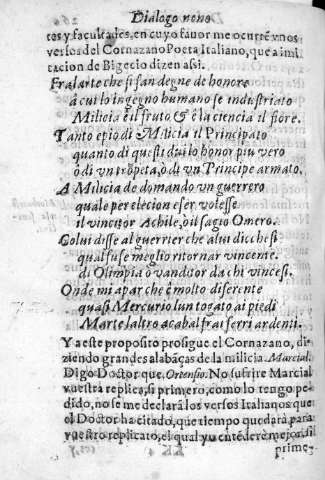 Dialogo nono
tes y facultades, en cuyo fauor me ocurrē vnos
versos del Cornazano Poeta Italiano, que a imi
tacion de Bigecio dizen assi.
Fra l arte che si fan degne de honore
á cui lo ingegno humano se industriato
Milicia è il fruto, & é la ciencia il fiore.
Tanto e piò di Milicia il Principato
quanto di questi dui lo honor piu vero
ò di vn trōpeta, ò di vn Principe armato.
A Milicia de domando vn guerrero
quale per elecion eser volesse
il vincitor Achile, ò il sagio Omero.
Colui disse al guerrier che a lui dicchesi
qual fuse meglio ritornar vincente
di Olimpia ò vanditor da chi vincesi.
Onde mi apar che è molto diferente
quasi Mercurio lun togato ai piedi
Marte laltro acabal frai ferri ardenti.
Y a este proposito prosigue el Cornazano, di-
ziendo grandes alabāças de la milicia. Marcial.
Digo Doctor que. Ortensio. No sufrire Marcial
vuestra replica, si primero, como lo tengo pe-
dido, no se me declarā los versos Italianos que
el Doctor ha citado, que tiempo quedará para
vuestro replicato, el qual yo entēderè mejor, si
prime-